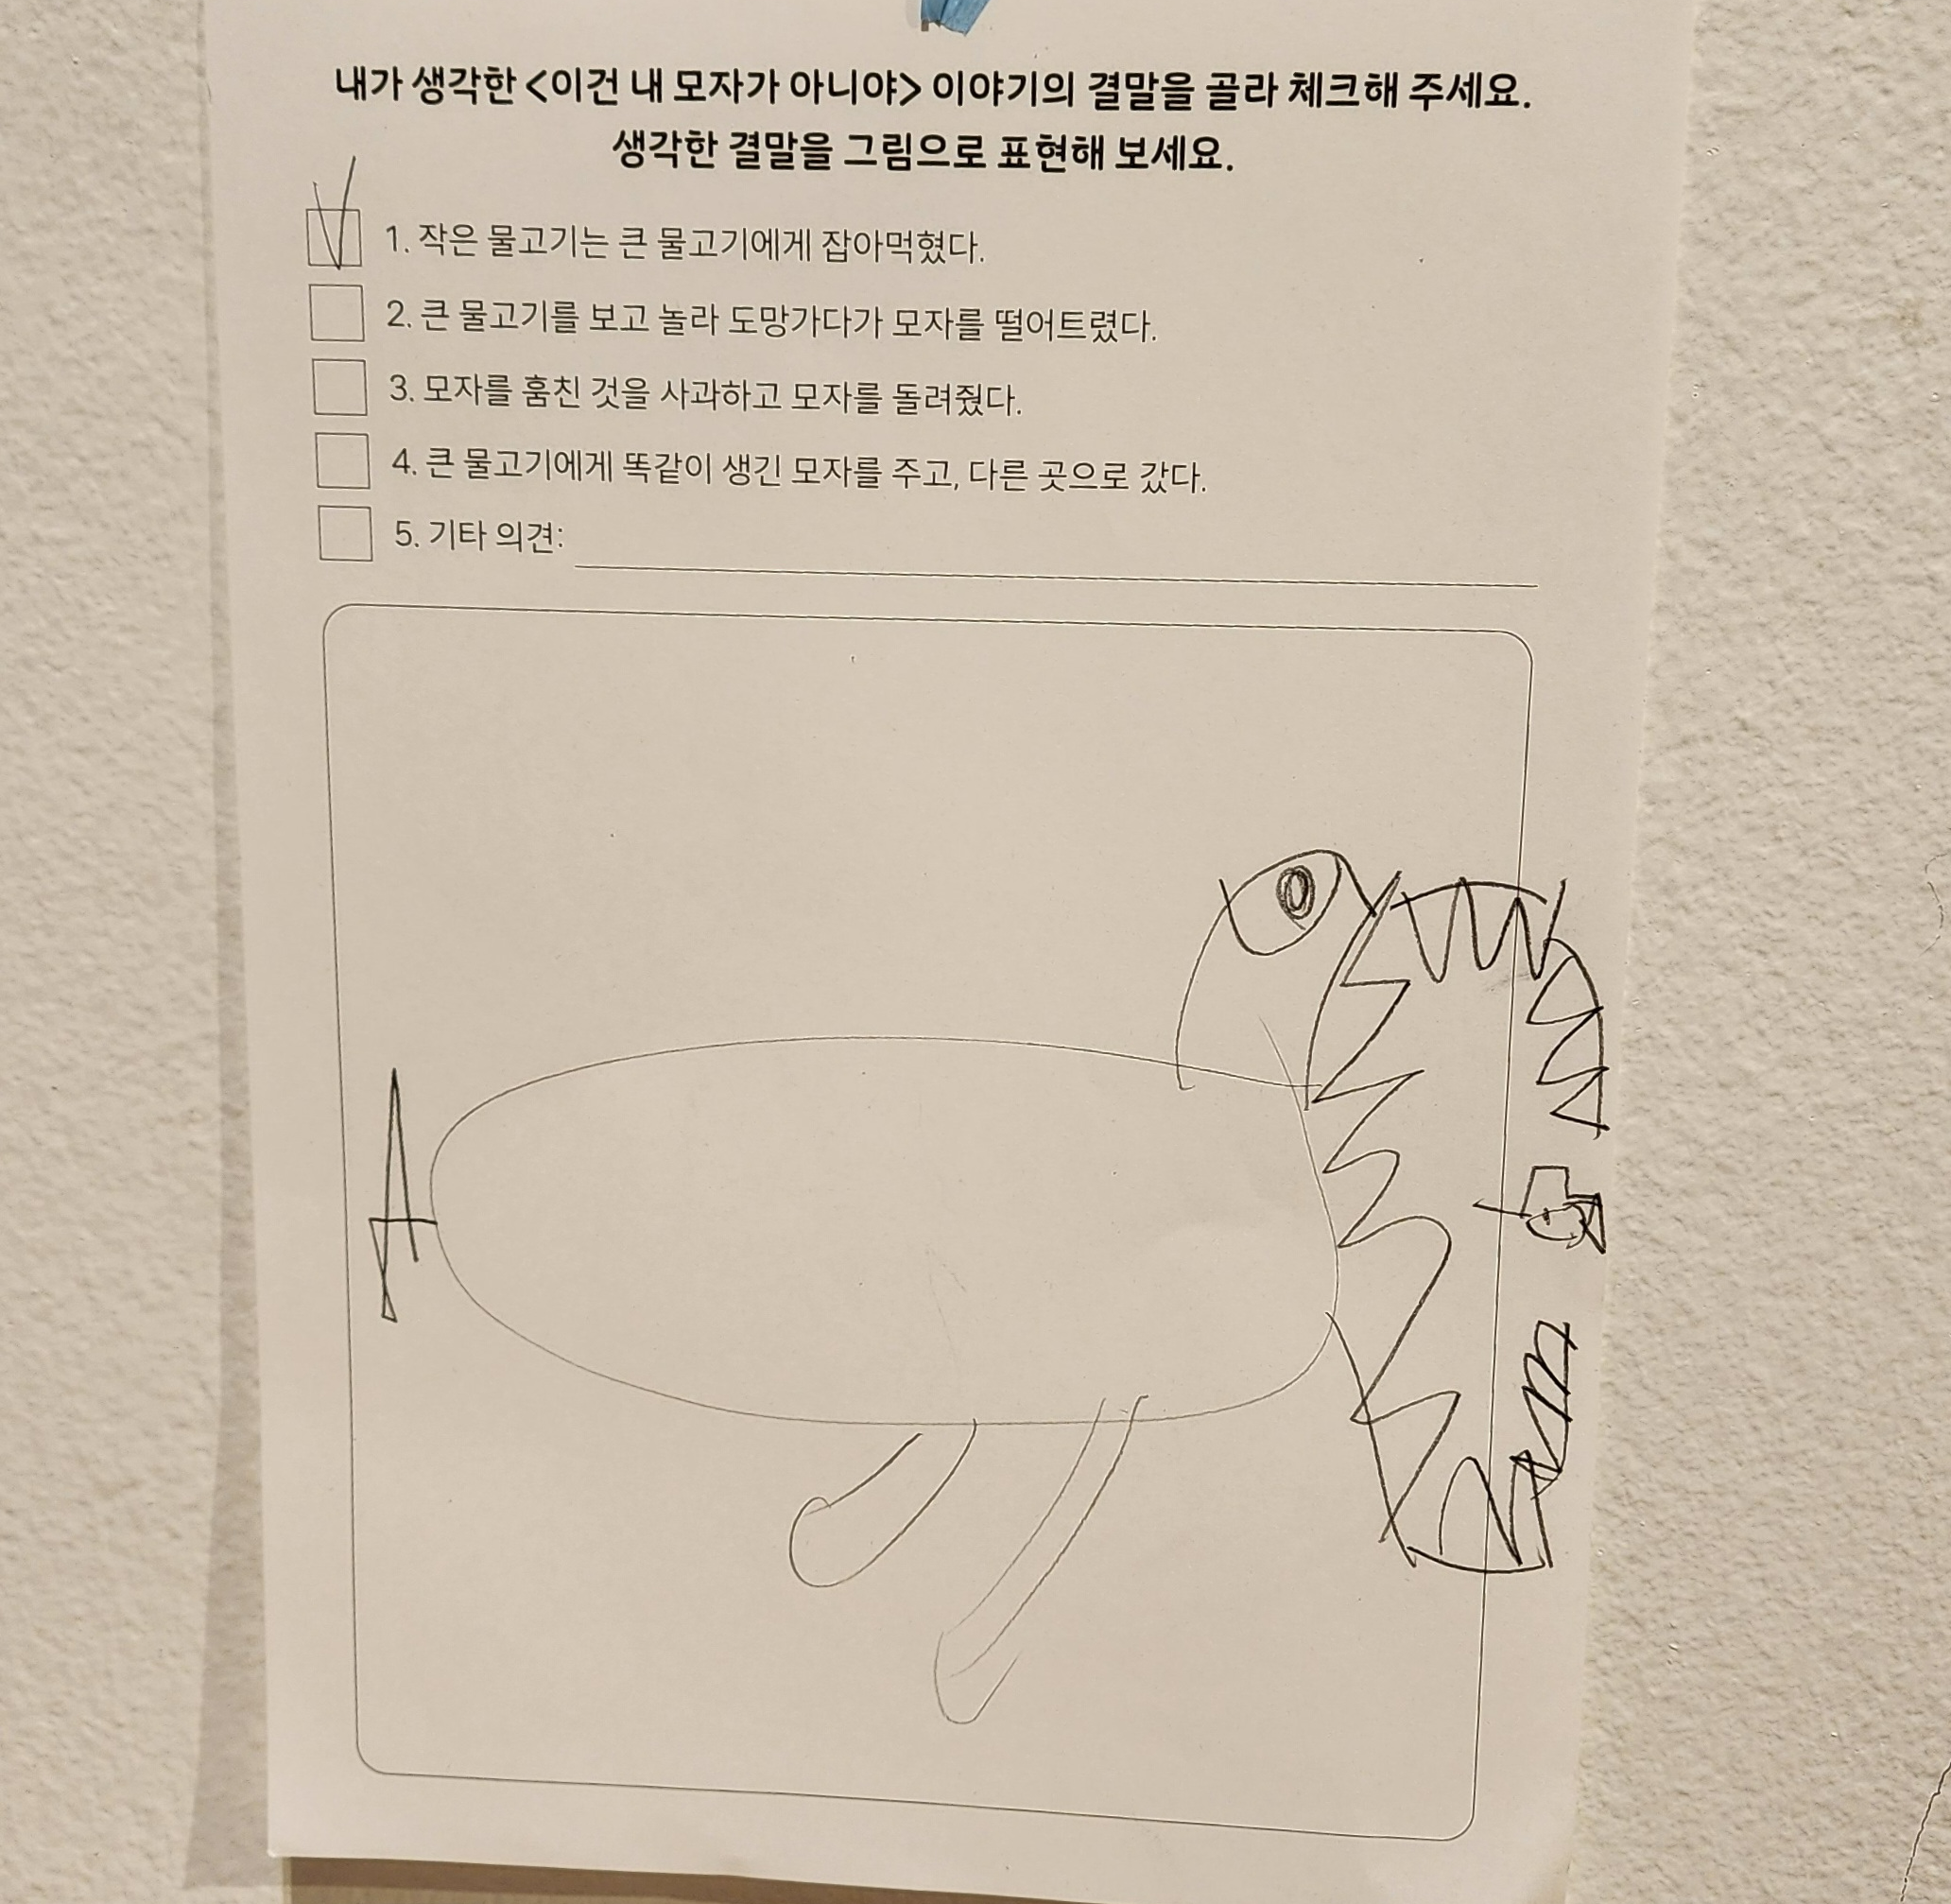 내가 생각한 <이건 내 모자가 아니야> 이야기의 결말을 골라 체크해 주세요.
생각한 결말을 그림으로 표현해 보세요.
1. 작은 물고기는 큰 물고기에게 잡아먹혔다.
2. 큰 물고기를 보고 놀라 도망가다가 모자를 떨어트렸다.
3. 모자를 훔친 것을 사과하고 모자를 돌려줬다.
4. 큰 물고기에게 똑같이 생긴 모자를 주고, 다른 곳으로 갔다.
5. 기타 의견: